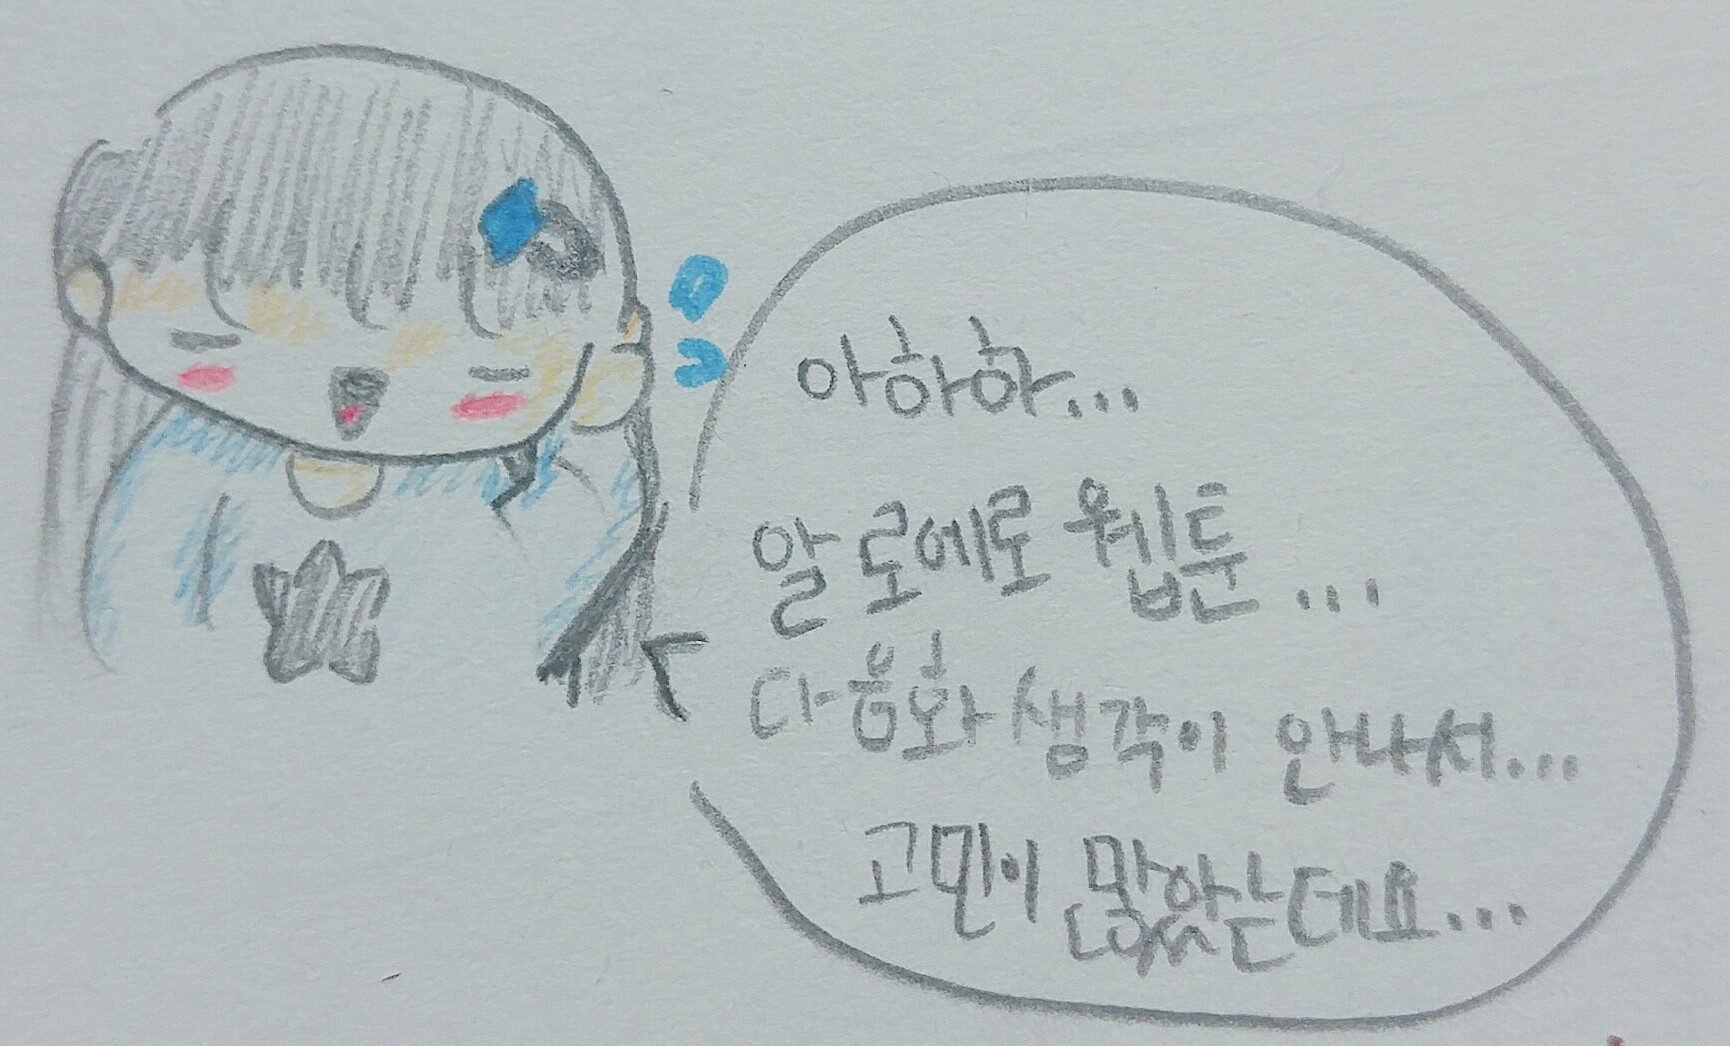 아하하...
알로에로 웹툰...
다음화 생각이 안나서...
고민이 많았는데요...